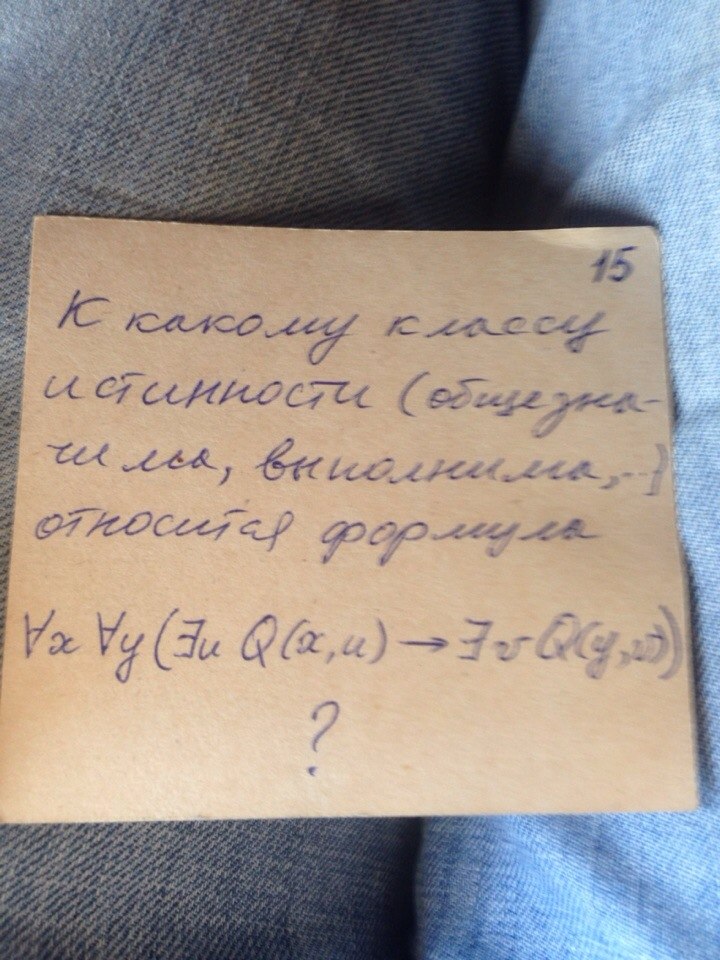 15
К какому классу
истинности (общезна-
чима, выполнима,..)
относится формула
∀x ∀y (∃u Q(x,u) → ∃v Q(y,v))
?